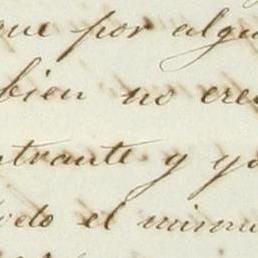 que por algu
bien no cre
ntrante y y
odo el mismo